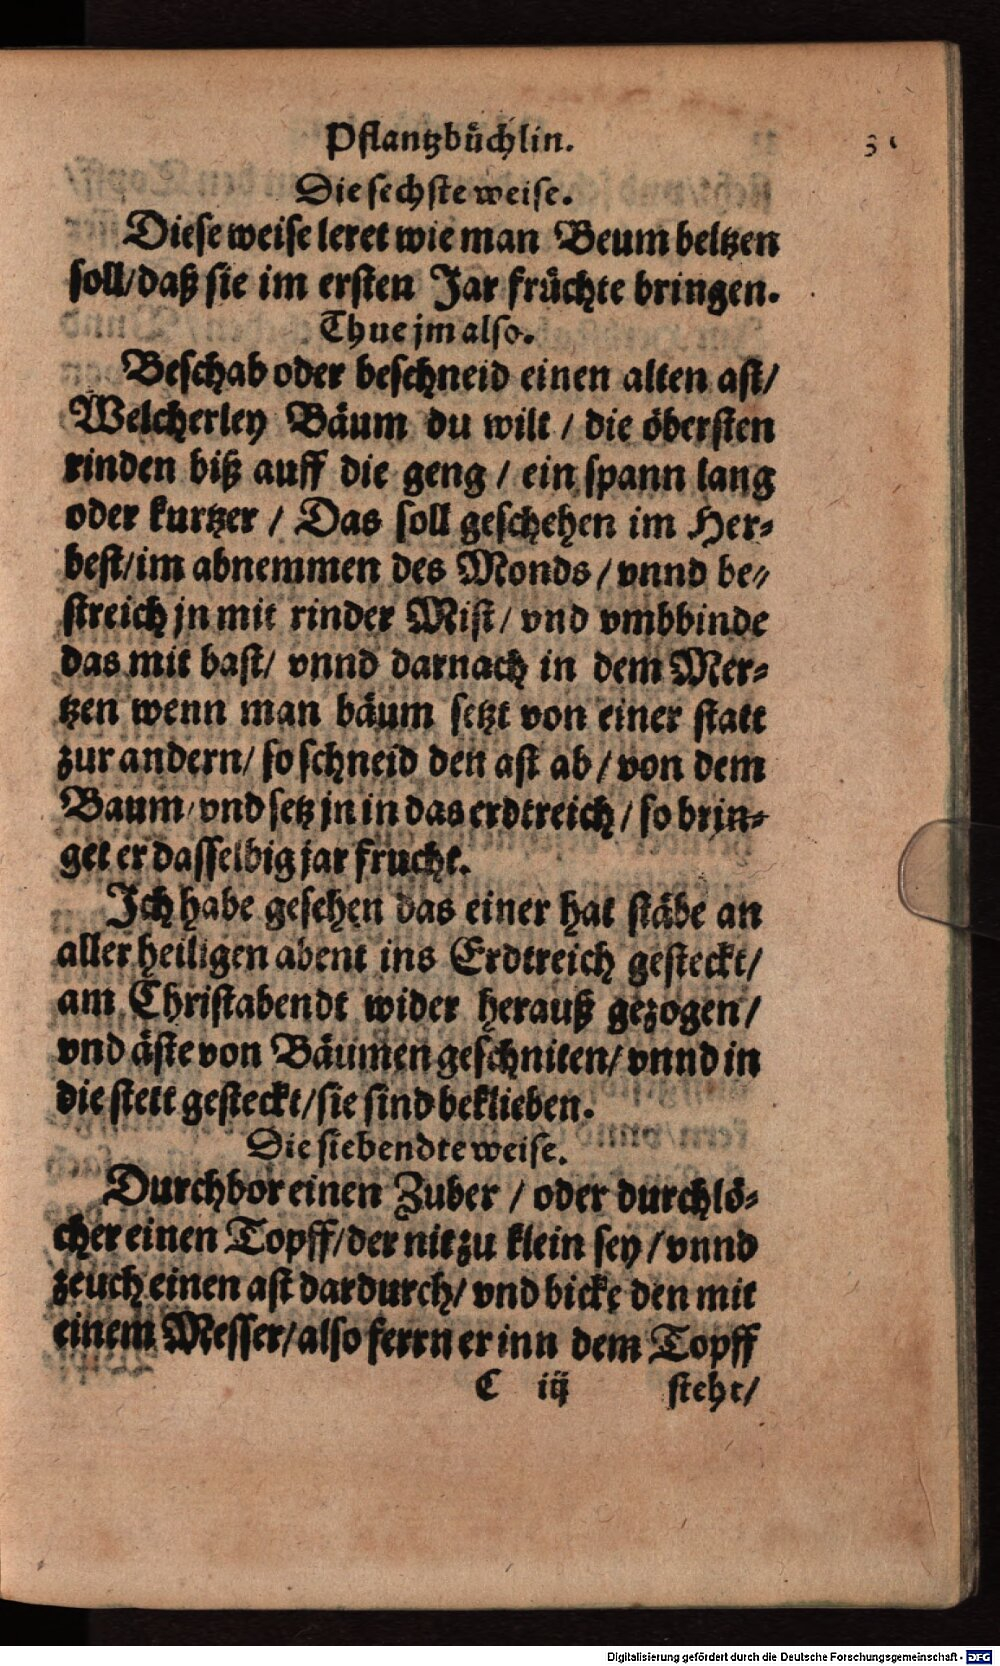 Pflantzbüchlin.
Die sechste weise.
Diese weise leret wie man Beum beltzen
soll/daß sie im ersten Jar früchte bringen.
Thue jm also.
Beschab oder beschneid einen alten ast/
Welcherley Bäum du wilt / die öbersten
rinden biß auff die geng / ein spann lang
oder kurtzer / Das soll geschehen im Her-
best/im abnemmen des Monds / vnnd be-
streich jn mit rinder Mist / vnd vmbbinde
das mit bast/ vnnd darnach in dem Mer-
tzen wenn man bäum setzt von einer statt
zur andern/ so schneid den ast ab / von dem
Baum/vnd setz jn in das erdtreich / so brin-
get er dasselbig jar frucht.
Ich habe gesehen das einer hat stäbe an
aller heiligen abent ins Erdtreich gesteckt/
am Christabendt wider herauß gezogen /
vnd äste von Bäumen geschniten/ vnnd in
die stett gesteckt/sie sind beklieben.
Die siebendte weise.
Durchbor einen Zuber / oder durchlö-
cher einen Topff/der nit zu klein sey / vnnd
zeuch einen ast dardurch/ vnd bicke den mit
einem Messer/also ferrn er inn dem Topff
C iij steht/
Digitalisierung gefördert durch die Deutsche Forschungsgemeinschaft - DFG